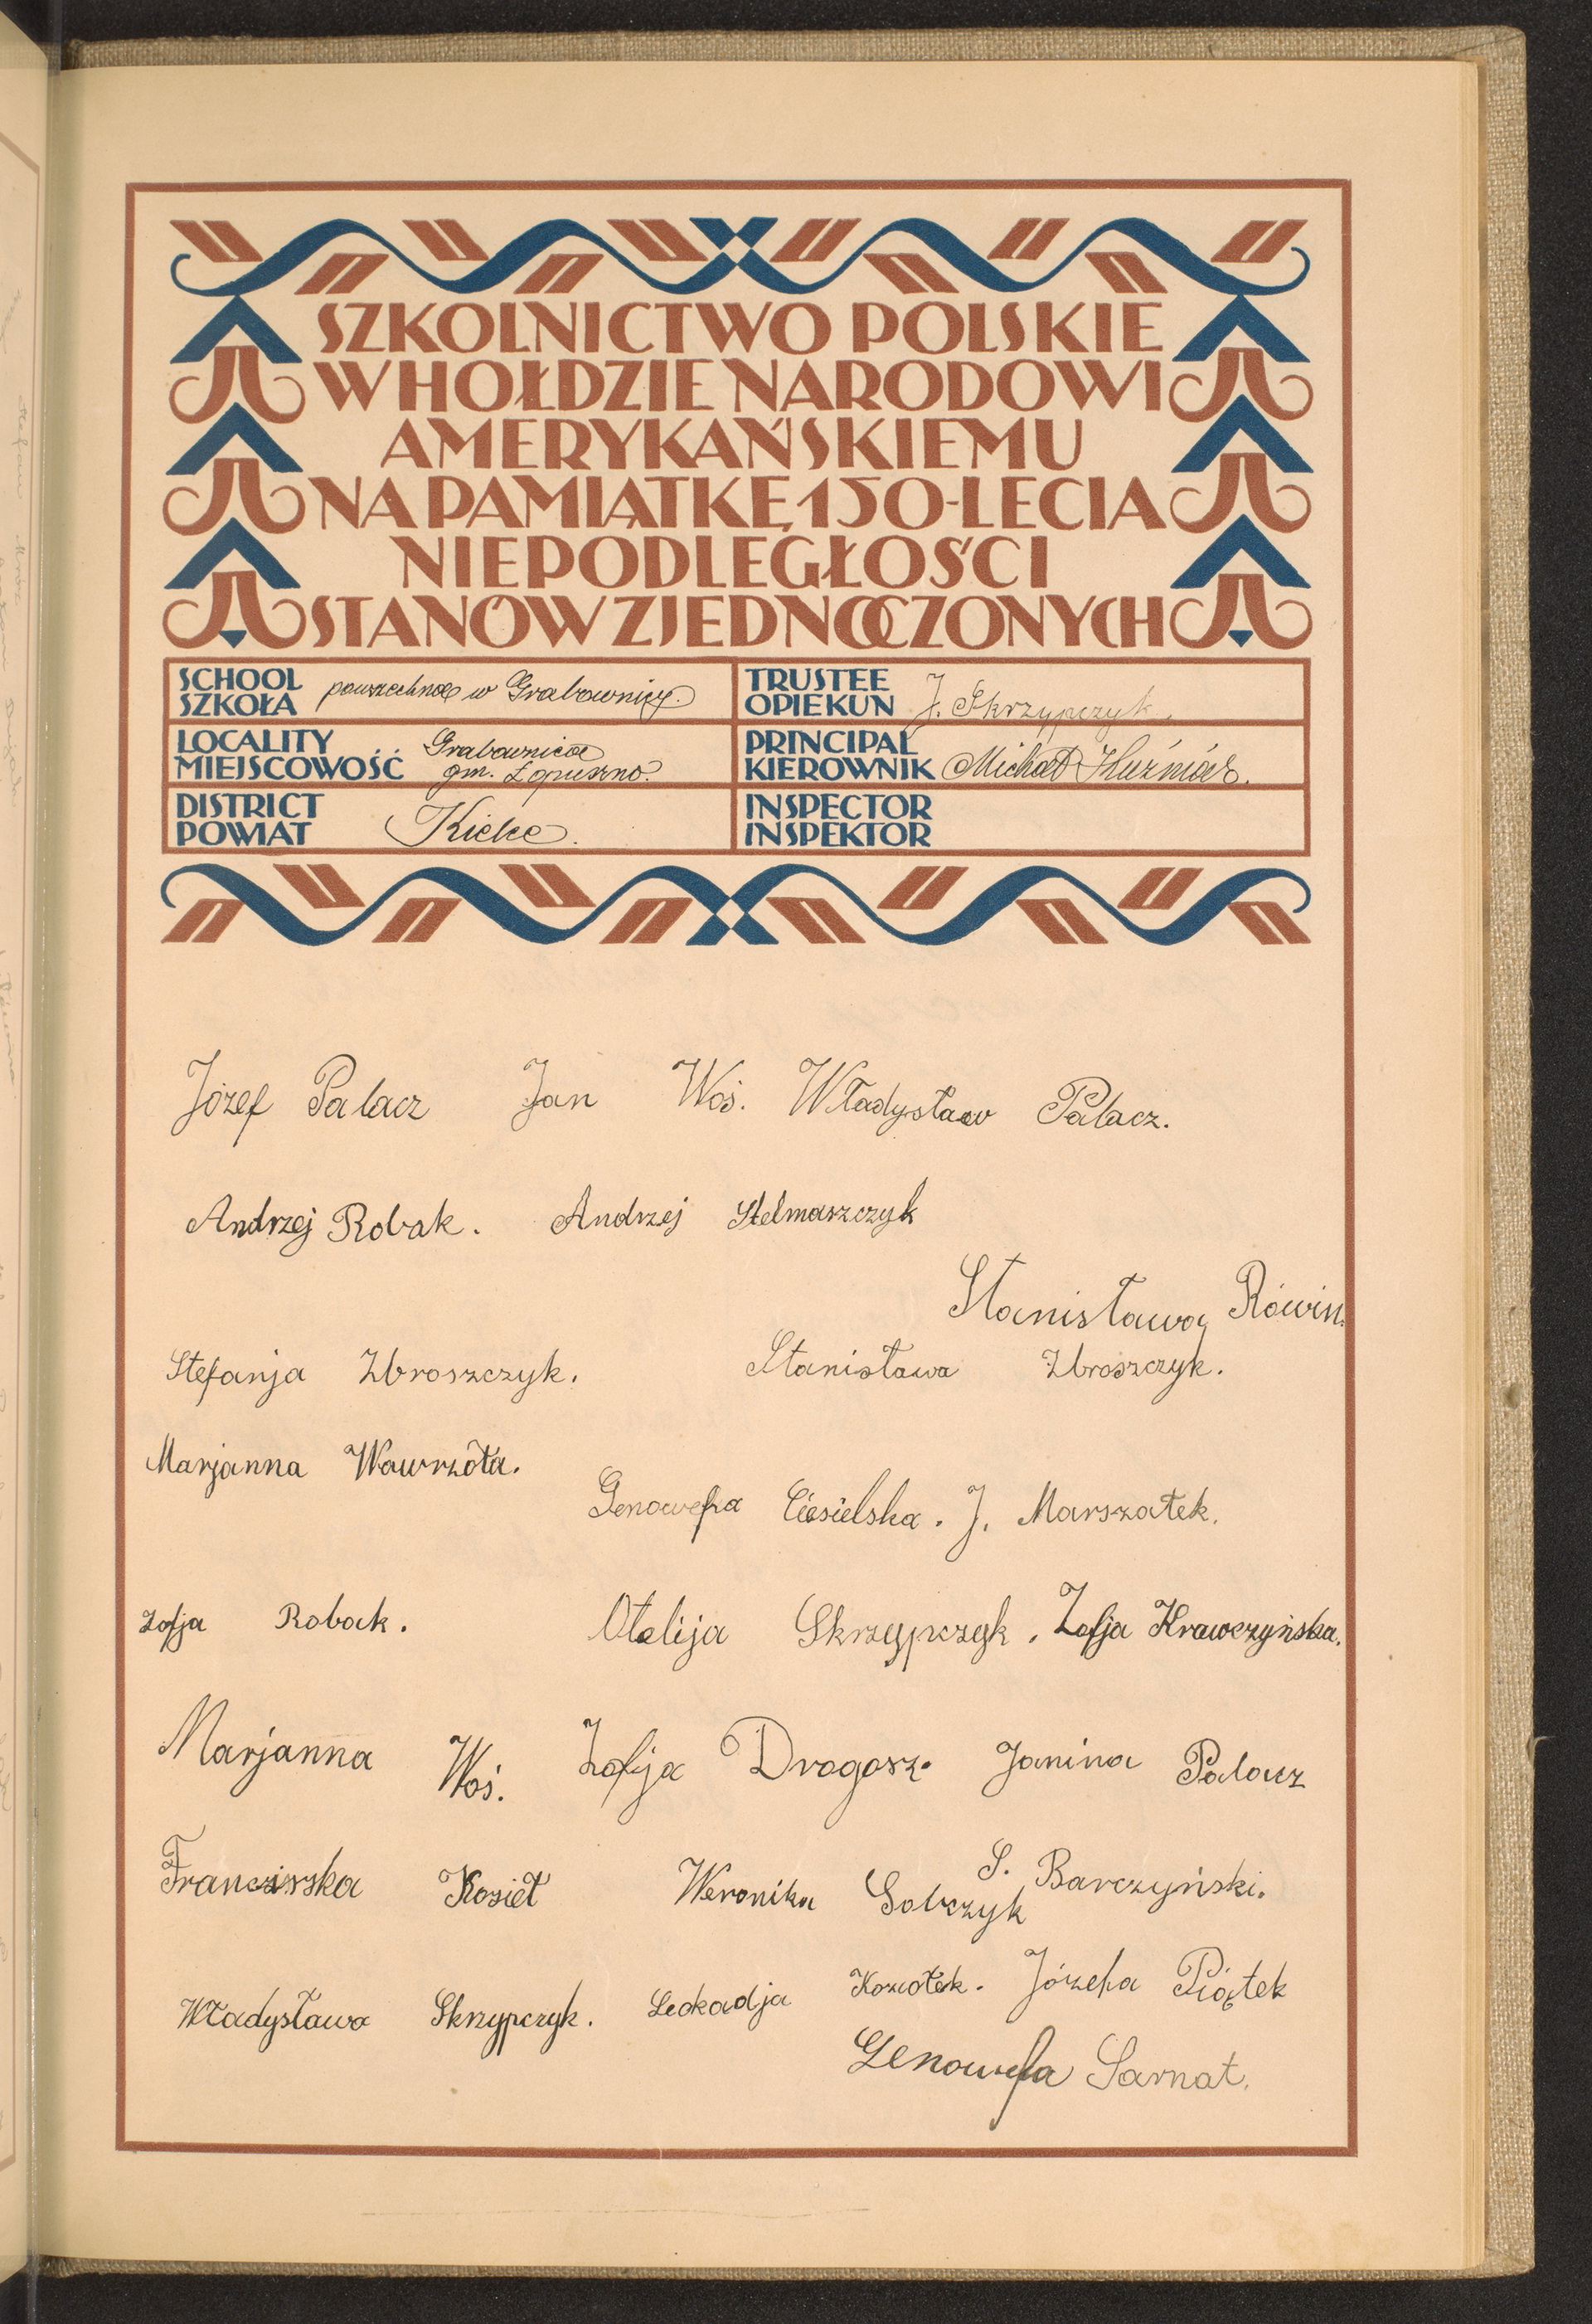 SZKOLNICTWO POLSKIE
W HOŁDZIE NARODOWI
AMERYKAŃSKIEMU
NA PAMIĄTKĘ 150-LECIA
NIEPODLEGŁOŚCI
STANÓW ZJEDNOCZONYCH
SCHOOL
SZKOŁA powszechna w Grabownicy.
TRUSTEE
OPIEKUN J. Skrzypczyk.
LOCALITY
MIEJSCOWOŚĆ Grabownica
gm. Łopuszno.
PRINCIPAL
KIEROWNIK Michał Kuźniar.
DISTRICT
POWIAT Kielce.
INSPECTOR
INSPEKTOR
Józef Palacz Jan Woś. Władysław Palacz.
Andrzej Robak. Andrzej Stelmaszczyk
Stanisława Rówin.
Stefanja Zbroszczyk. Stanisława Zbroszczyk.
Marjanna Wawrzoła.
Genowefa Ciesielska. J. Marszałek.
Zofja Robak. Otalija Skrzypczyk. Zofja Krawczyńska.
Marjanna Woś. Zofija Drogosz. Janina Palacz
Franciszka Kosieł Weronika Sobczyk S. Barczyński.
Władysława Skrzypczyk. Leokadja Koziołek. Józefa Piątek
Genowefa Sarnat.